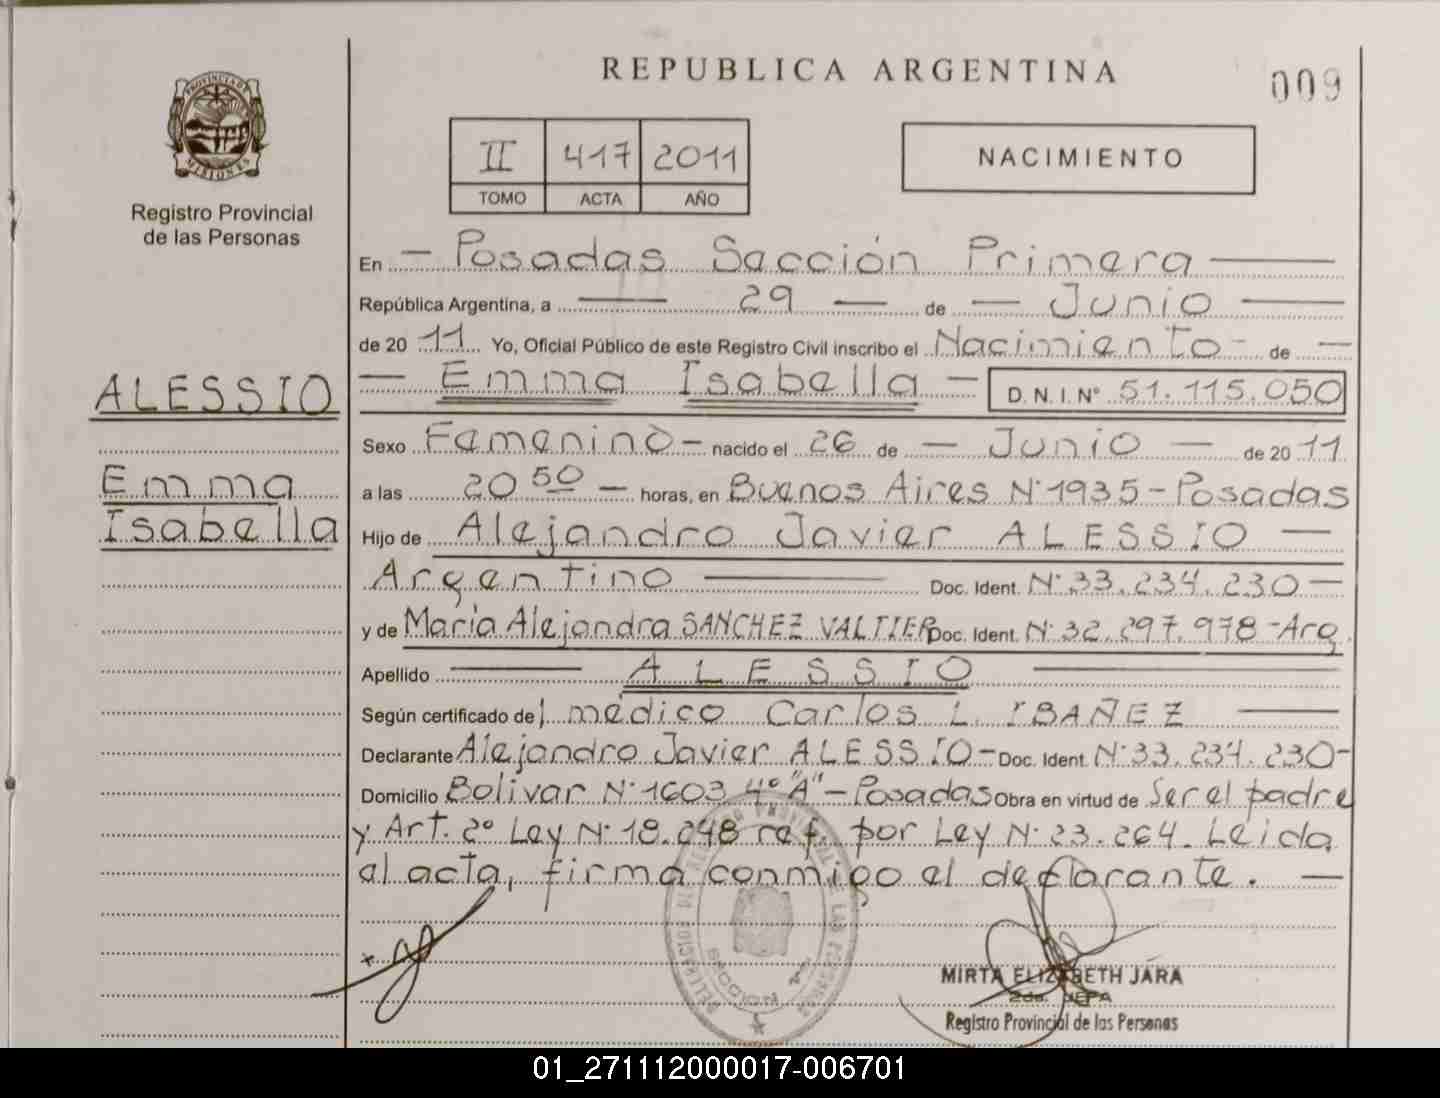 REPUBLICA ARGENTINA
009
PROVINCIA DE
MISIONES
Registro Provincial
de las Personas
II 417 2011
TOMO ACTA AÑO
NACIMIENTO
En — Posadas Sección Primera —
República Argentina, a — 29 — de — Junio —
de 20 11 Yo, Oficial Público de este Registro Civil inscribo el Nacimiento - de —
ALESSIO
— Emma Isabella — D.N.I.Nº 51.115.050
Sexo Femenino — nacido el 26 de — Junio — de 20 11
Emma
Isabella
a las 20 50 — horas, en Buenos Aires Nº 1935 - Posadas
Hijo de Alejandro Javier ALESSIO —
Argentino — Doc. Ident. Nº 33.234.230 —
y de María Alejandra SANCHEZ VALTIER Doc. Ident. Nº 32.297.978 - Arg.
Apellido — ALESSIO —
Según certificado del médico Carlos L. IBAÑEZ —
Declarante Alejandro Javier ALESSIO - Doc. Ident. Nº 33.234.230 -
Domicilio Bolivar Nº 1603 4º "A" - Posadas Obra en virtud de Ser el padre
y Art. 2º Ley Nº 18.248 ref. por Ley Nº 23.264. Leida
el acta, firma conmigo el declarante. —
DELEGACION DEL REGISTRO PROVINCIAL DE LAS PERSONAS
SECCION 1ª
MIRTA ELIZABETH JARA
2da. JEFA
Registro Provincial de las Personas
01_271112000017-006701